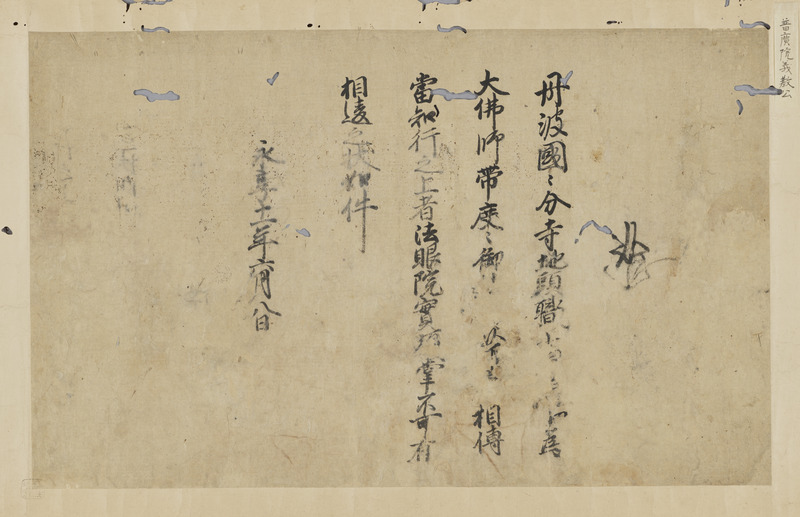 普廣院義教公
丹波國〻分寺地頭職 爲
大佛師帶度〻御 相傳
當知行之上者法眼院實 掌不可有
相違之状如件
永享十一年六月八日